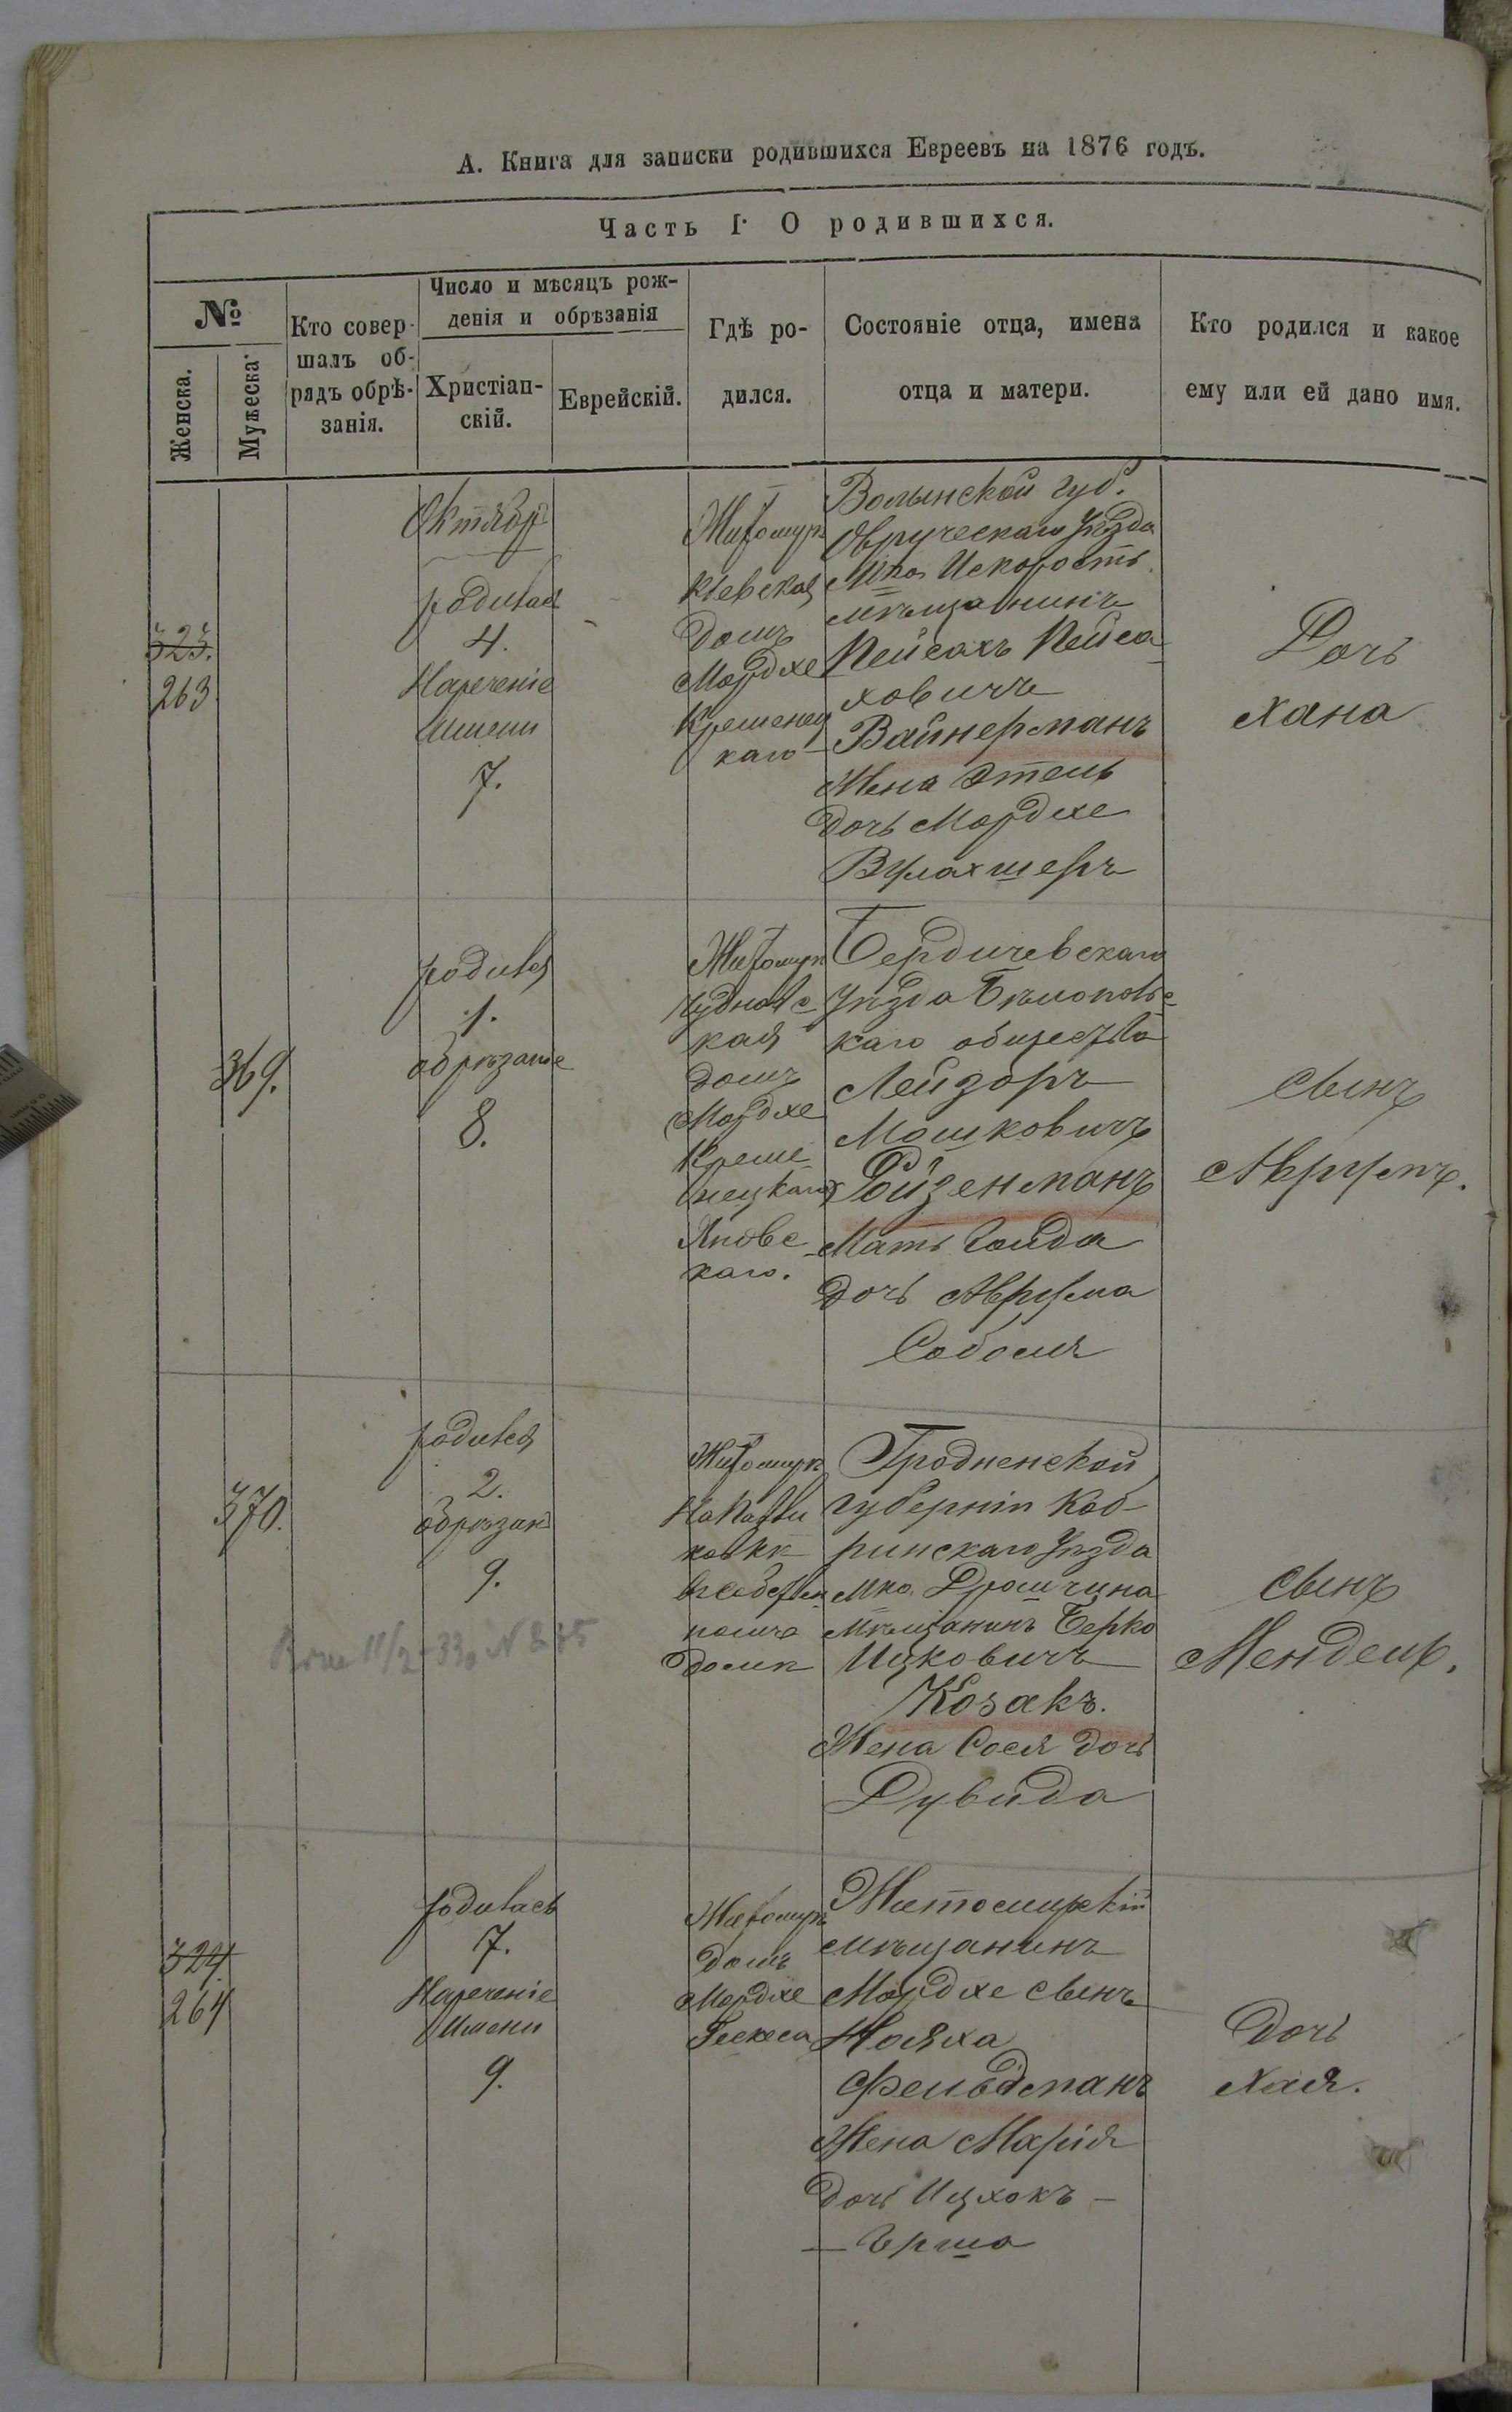 А. Книга для записки родившихся Евреевъ на 1876 годъ.
Часть I. О родившихся.
№
Женска.
Мужеска.
Кто совер-
шалъ об-
рядъ обрѣ-
занія.
Число и мѣсяцъ рож-
денія и обрѣзанія
Христіан-
скій.
Еврейскій.
Гдѣ ро-
дился.
Состояніе отца, имена
отца и матери.
Кто родился и какое
ему или ей дано имя.
323.
263
Октябрь
родилась
4.
Нареченіе
Имени
7.
Житомиръ
Кіевская
домъ
Мордхе
Кременец
каго
Волынской губ.
Овруческаго Уѣзда
Мѣка Искорость
мѣщанинъ
Пейсахъ Пейса-
ховичъ
Вайнерманъ
Жена Этель
дочь Мордхе
Дочь
Хана
369.
родился
1.
обрѣзаніе
8.
Житомиръ
Чудновс
кая
домъ
Мордхе
Креме-
нецкаго
Бердичевскаго
Уѣзда
каго общества
Лейзоръ
Мошковичъ
Ройзенманъ
Мать Голда
дочь Аврума
Соболя
Сынъ
Аврумъ.
370.
родился
2.
обрѣзан
9.
Житомиръ
домѣ
Гродненской
губерніи Коб-
ринскаго Уѣзда
Мко.
Мѣщанинъ Берко
Ицковичъ
Козакъ.
Жена Сося дочь
Дувида
Сынъ
Мендель.
324.
264
родилась
7.
Нареченіе
Имени
9.
Житомиръ
домъ
Мордхе
Житомирскій
мѣщанинъ
Мордхе сынъ
Нояха
Фельдманъ
Жена Марія
дочь Ицхокъ-
- Герша
Дочь
Хая.